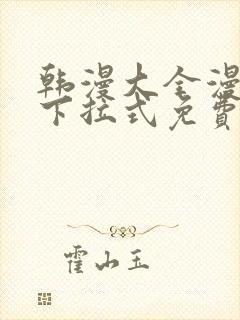 韩漫大全漫
下拉式免费
霍山玉